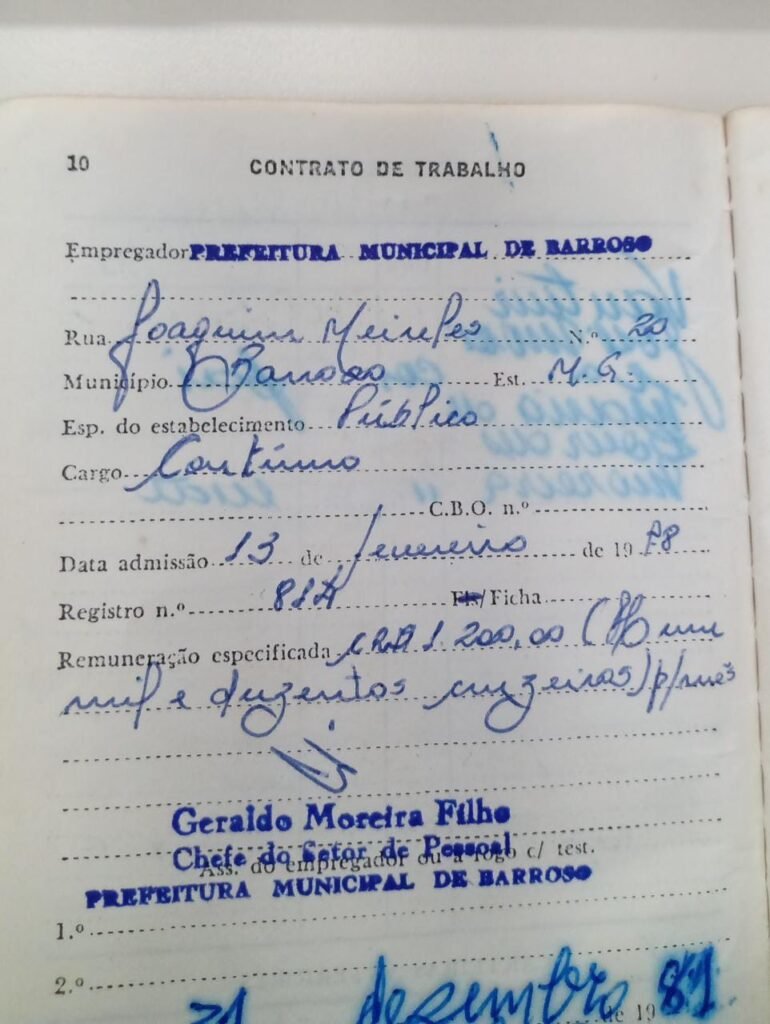 10 CONTRATO DE TRABALHO
Empregador PREFEITURA MUNICIPAL DE BARROSO
Rua Joaquim Meireles N.º 20
Município Barroso Est. M.G.
Esp. do estabelecimento Público
Cargo Contínuo
C.B.O. n.º
Data admissão 13 de fevereiro de 19 78
Registro n.º 81A Fls/Ficha
Remuneração especificada CR$ 1.200,00 (Hum
mil e duzentos cruzeiros) p/mês
Geraldo Moreira Filho
Chefe do Setor de Pessoal
Ass. do empregador ou a rogo c/ test.
PREFEITURA MUNICIPAL DE BARROSO
1.º
2.º
31 dezembro de 19 81